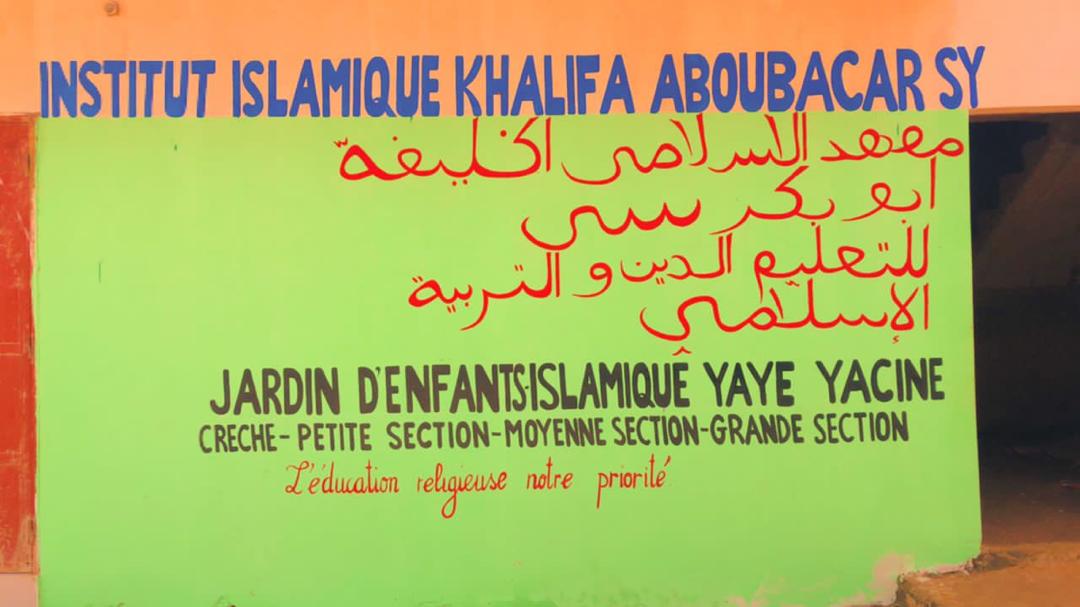 INSTITUT ISLAMIQUE KHALIFA ABOUBACAR SY
معهد السلامي الخليفة
ابو بكر سي
للتعليم الدين و التربية
الإسلامي
JARDIN D'ENFANTS-ISLAMIQUE YAYE YACINE
CRECHE-PETITE SECTION-MOYENNE SECTION-GRANDE SECTION
L'éducation religieuse notre priorité